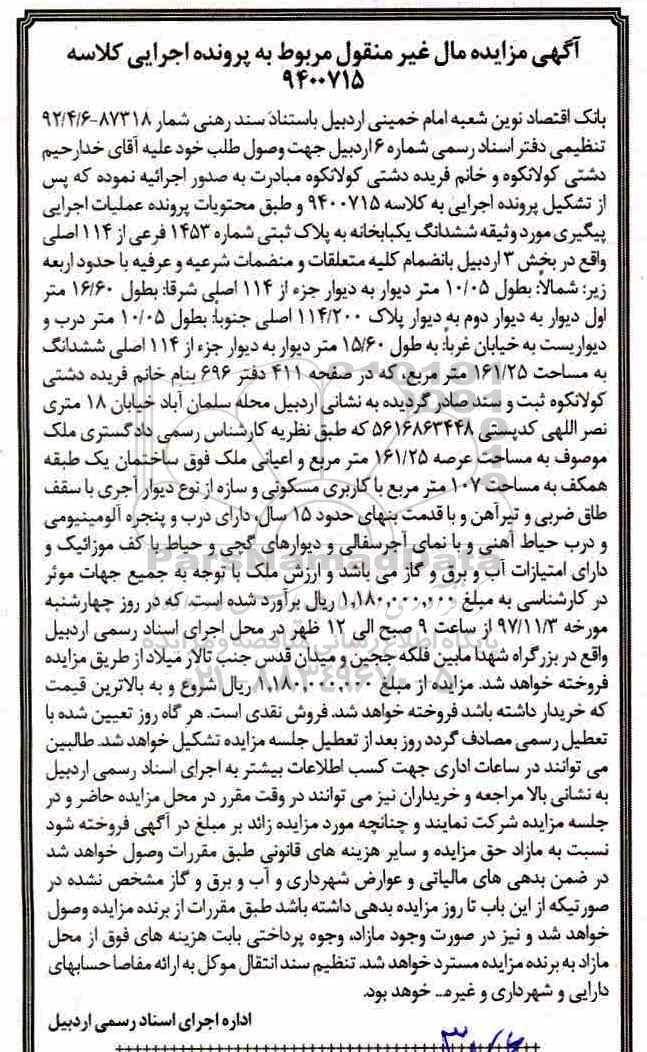 آگهی مزایده مال غیر منقول مربوط به پرونده اجرایی کلاسه
۹۴۰۰۷۱۵
بانک اقتصاد نوین شعبه امام خمینی اردبیل باستناد سند رهنی شمار ۸۷۳۱۸-۹۲/۴/۶
تنظیمی دفتر اسناد رسمی شماره ۶ اردبیل جهت وصول طلب خود علیه آقای خدارحیم
دشتی کولانکوه و خانم فریده دشتی کولانکوه مبادرت به صدور اجرائیه نموده که پس
از تشکیل پرونده اجرایی به کلاسه ۹۴۰۰۷۱۵ و طبق محتویات پرونده عملیات اجرایی
پیگیری مورد وثیقه ششدانگ یکبابخانه به پلاک ثبتی شماره ۱۴۵۳ فرعی از ۱۱۴ اصلی
واقع در بخش ۳ اردبیل بانضمام کلیه متعلقات و منضمات شرعیه و عرفیه با حدود اربعه
زیر: شمالاً: بطول ۱۰/۰۵ متر دیوار به دیوار جزء از ۱۱۴ اصلی شرقا: بطول ۱۶/۶۰ متر
اول دیوار به دیوار دوم به دیوار پلاک ۱۱۴/۲۰۰ اصلی جنوباً: بطول ۱۰/۰۵ متر درب و
دیواریست به خیابان غرباً: به طول ۱۵/۶۰ متر دیوار به دیوار جزء از ۱۱۴ اصلی ششدانگ
به مساحت ۱۶۱/۲۵ متر مربع، که در صفحه ۴۱۱ دفتر ۶۹۶ بنام خانم فریده دشتی
کولانکوه ثبت و سند صادر گردیده به نشانی اردبیل محله سلمان آباد خیابان ۱۸ متری
نصر اللهی کدپستی ۵۶۱۶۸۶۳۴۴۸ که طبق نظریه کارشناس رسمی دادگستری ملک
موصوف به مساحت عرصه ۱۶۱/۲۵ متر مربع و اعیانی ملک فوق ساختمان یک طبقه
همکف به مساحت ۱۰۷ متر مربع با کاربری مسکونی و سازه از نوع دیوار آجری با سقف
طاق ضربی و تیرآهن و با قدمت بنهای حدود ۱۵ سال، دارای درب و پنجره آلومینیومی
و درب حیاط آهنی و با نمای آجرسفالی و دیوارهای گچی و حیاط با کف موزائیک و
دارای امتیازات آب و برق و گاز می باشد و ارزش ملک با توجه به جمیع جهات موثر
در کارشناسی به مبلغ ۱,۱۸۰,۰۰۰,۰۰۰ ریال برآورد شده است، که در روز چهارشنبه
مورخه ۹۷/۱۱/۳ از ساعت ۹ صبح الی ۱۲ ظهر در محل اجرای اسناد رسمی اردبیل
واقع در بزرگراه شهدا مابین فلکه ججین و میدان قدس جنب تالار میلاد از طریق مزایده
فروخته خواهد شد. مزایده از مبلغ ۱,۱۸۰,۰۰۰,۰۰۰ ریال شروع و به بالاترین قیمت
که خریدار داشته باشد فروخته خواهد شد. فروش نقدی است. هر گاه روز تعیین شده با
تعطیل رسمی مصادف گردد روز بعد از تعطیل جلسه مزایده تشکیل خواهد شد. طالبین
می توانند در ساعات اداری جهت کسب اطلاعات بیشتر به اجرای اسناد رسمی اردبیل
به نشانی بالا مراجعه و خریداران نیز می توانند در وقت مقرر در محل مزایده حاضر و در
جلسه مزایده شرکت نمایند و چنانچه مورد مزایده زائد بر مبلغ در آگهی فروخته شود
نسبت به مازاد حق مزایده و سایر هزینه های قانونی طبق مقررات وصول خواهد شد
در ضمن بدهی های مالیاتی و عوارض شهرداری و آب و برق و گاز مشخص نشده در
صورتیکه از این باب تا روز مزایده بدهی داشته باشد طبق مقررات از برنده مزایده وصول
خواهد شد و نیز در صورت وجود مازاد، وجوه پرداختی بابت هزینه های فوق از محل
مازاد به برنده مزایده مسترد خواهد شد. تنظیم سند انتقال موکل به ارائه مفاصا حسابهای
دارایی و شهرداری و غیره... خوهد بود.
اداره اجرای اسناد رسمی اردبیل
ParsNamadData
پایگاه اطلاع رسانی مناقصه و مزایده
۰۲۱-۸۸۳۴۹۶۷۰-۵